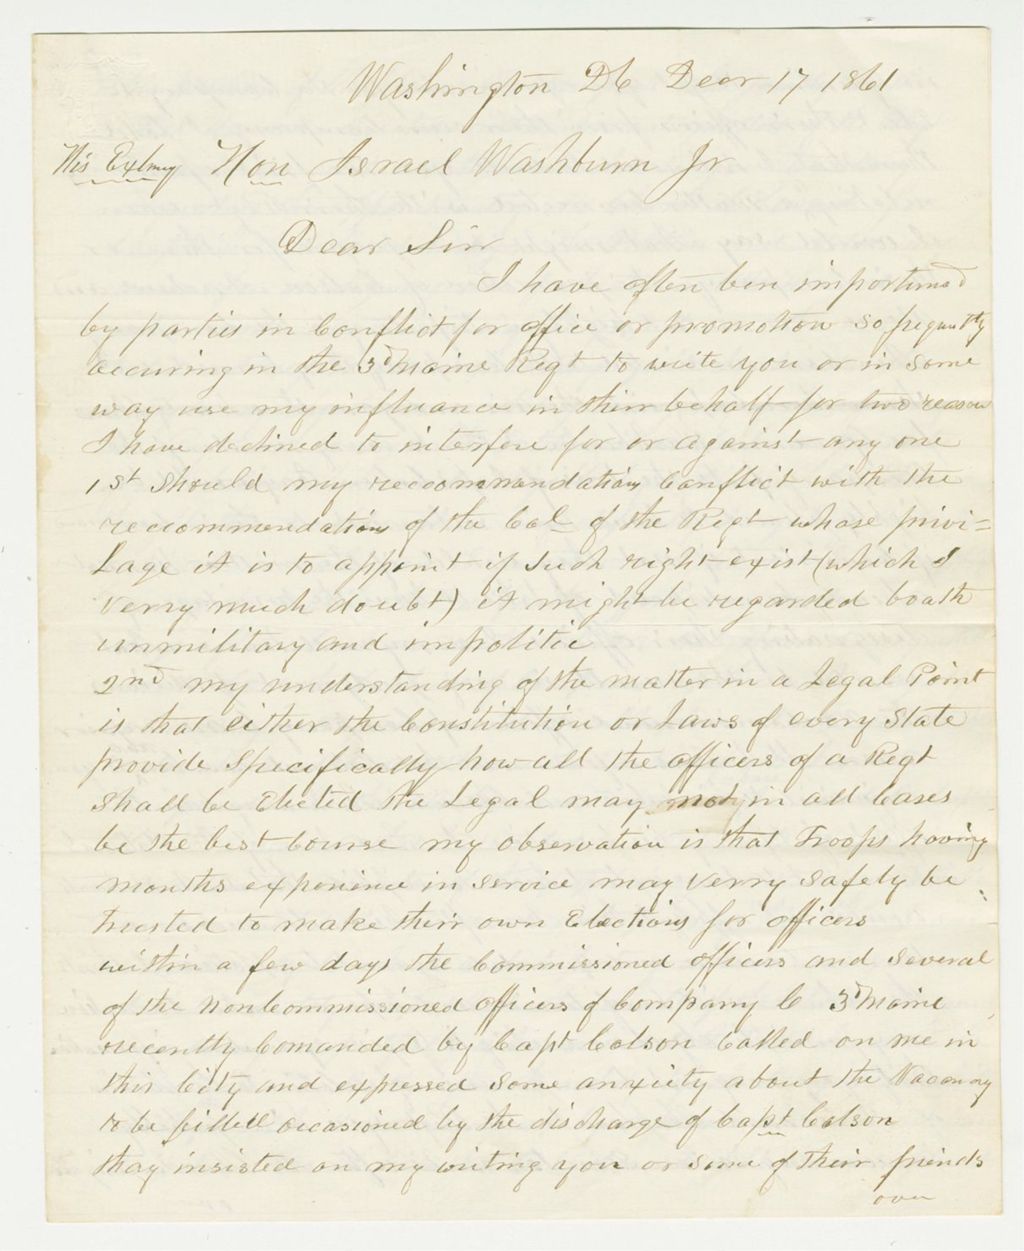 Washington DC Decr 17 1861
His Exlncy Hon Israel Washburn Jr
Dear Sir
I have often ben importuned
by parties in Conflict for office or promotion so frequently
occuring in the 3d Maine Regt to write you or in some
way use my influance in their behalf for two reason
I have declined to interfere for or against any one
1st Should my reccommendations Conflict with the
reccommendations of the Col of the Regt whose privi=
lage it is to appoint if such right exist (which I
verry much doubt) it might be regarded boath
unmilitary and impolitic
2nd my understanding of the matter in a Legal Point
is that either the Constitution or Laws of every State
provide Specifically how all the officers of a Regt
shall be Elected the Legal may not in all Cases
be the best Course my observation is that Troops having
months experience in service may verry safely be
trusted to make their own Elections for officers
within a few days the Commissioned officers and several
of the nonCommissioned officers of Company C 3d Maine
recently Comanded by Capt Colson Called on me in
this City and expressed some anxiety about the Vacancy
to be filled occasioned by the discharge of Capt Colson
thay insisted on my writing you or some of their friends
over